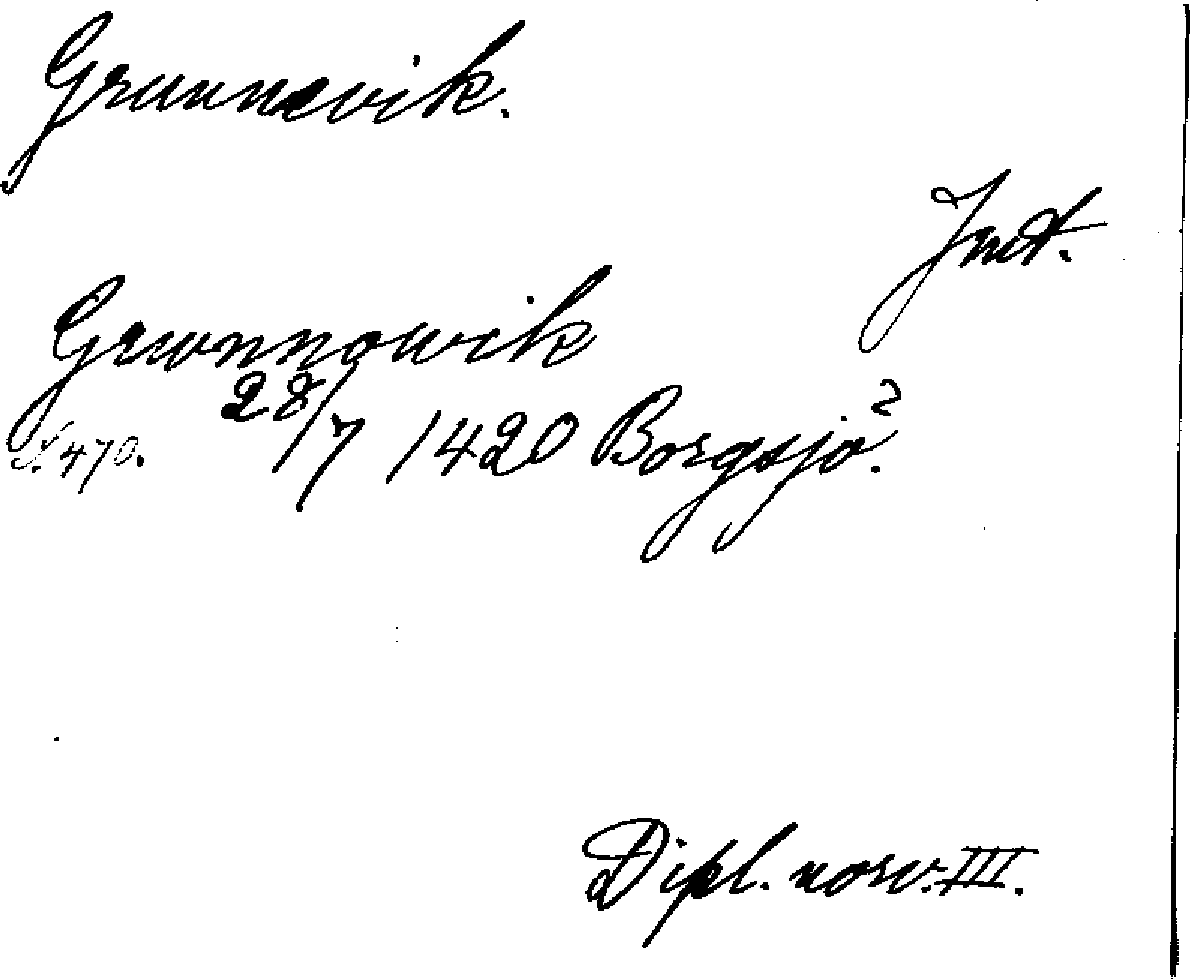 Grunnevik.
Jmt.
Grwnnowik
S. 470. 28/7 1420 Borgsjö?
Dipl. norv. III.